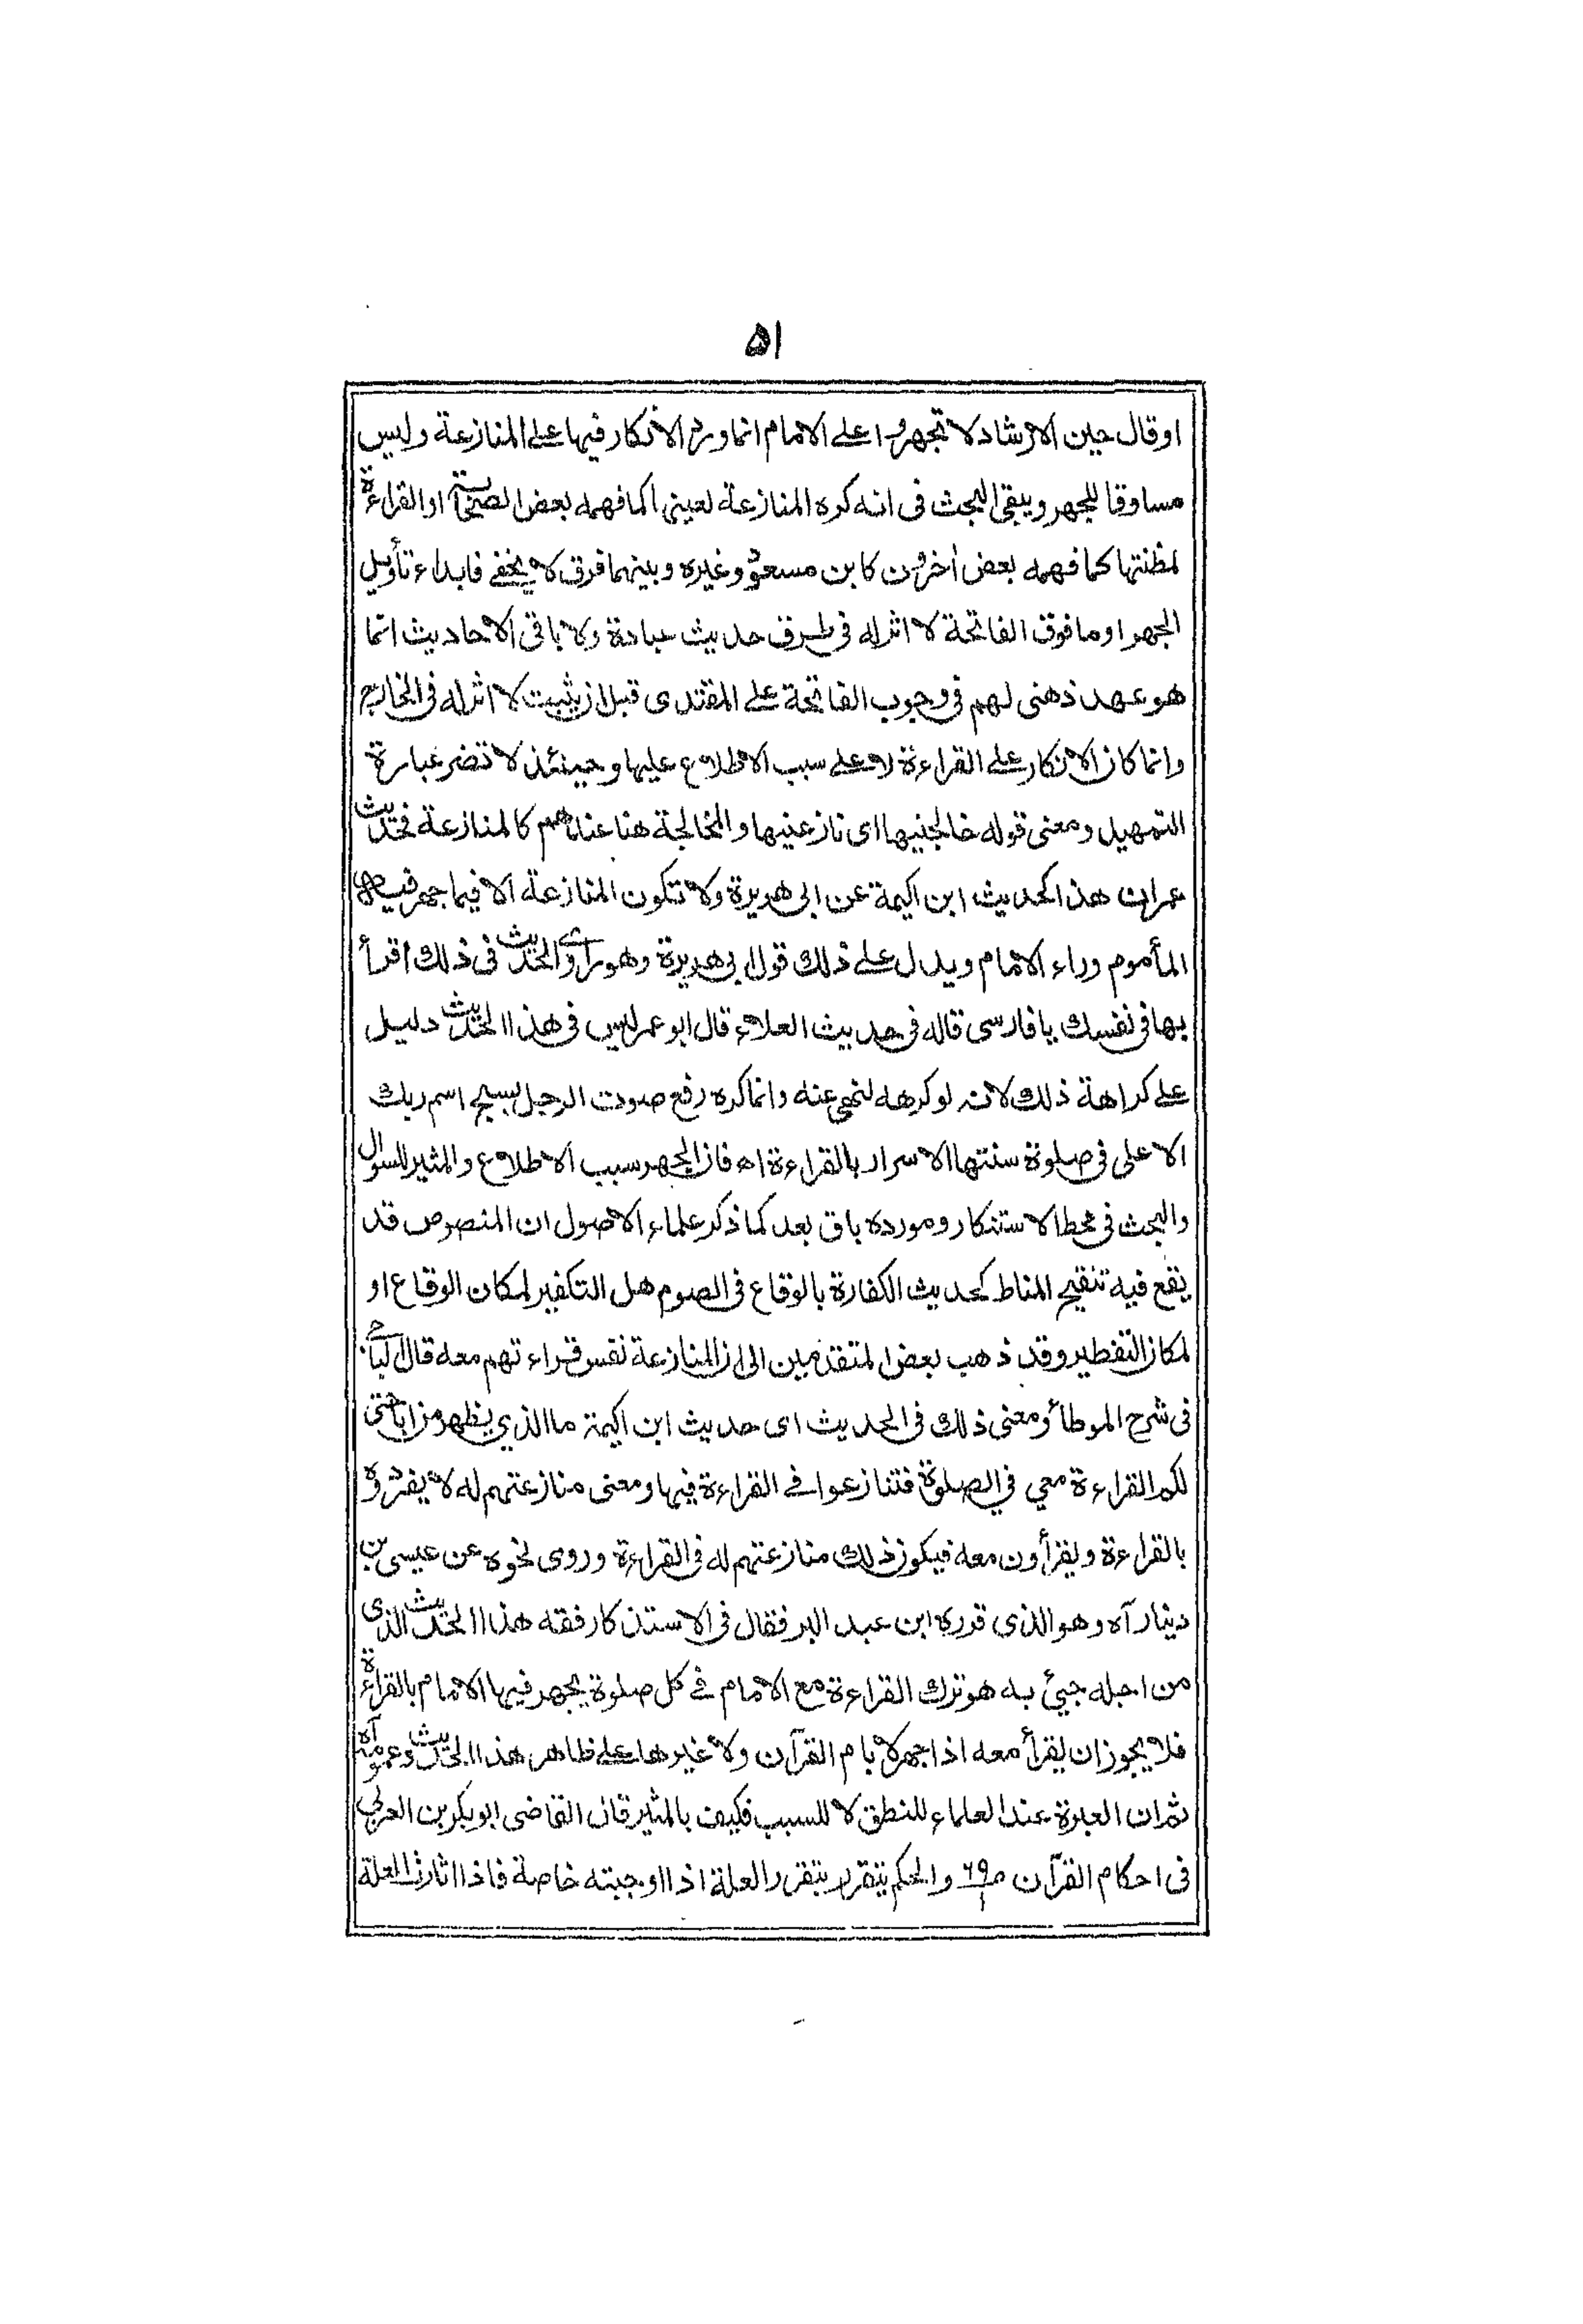 ۵۱
اوقال حين الارشاد لا تجهروا على الامام انما ورد الانكار فيها على المنازعة وليس
مساوقا للجهر ويبقى البحث فى انه كره المنازعة لعينها كما فهمه بعض الصحابة او القراءة
لمظنتها كما فهمه بعض اٰخرون كابن مسعود وغيره وبينهما فرق لا يخفے فابداء تأويل
الجهر او ما فوق الفاتحة لا اثر له فى طرف حديث عبادة ولا باقى الاحاديث انما
هو عهد ذهنى لهم فى وجوب الفاتحة على المقتدى قبل ان يثبت لا اثر له فى الخارج
وانما كان الانكار على القراءة لا على سبب الاطلاع عليها وحينئذ لا تضر عبارة
التمهيد ومعنى قوله خالجنيها اى نازعنيها والمخالجة هنا عندهم كالمنازعة فحديث
عمران هذا كحديث ابن اكيمة عن ابى هريرة ولا تكون المنازعة الا فيما جهر فيه
المأموم وراء الامام ويدل على ذلك قول ابى هريرة وهو راوى الحديث فى ذلك اقرأ
بها فى نفسك يا فارسى قاله فى حديث العلاء قال ابو عمر ليس فى هذا الحديث دليل
على كراهة ذلك لانه لو كرهه لنهى عنه وانما كره رفع صوت الرجل بسبح اسم ربك
الاعلى فى صلوة سنتها الاسرار بالقراءة اه فان الجهر سبب الاطلاع والمثير للسوال
والبحث فى محط الاستنكار ومورده باق بعد كما ذكر علماء الاصول ان المنصوص قد
يقع فيه تنقيح المناط كحديث الكفارة بالوقاع فى الصوم هل التكفير لمكان الوقاع او
لمكان التفطير وقد ذهب بعض المتقدمين الى ان المنازعة نفس قراءتهم معه قال الباجى
فى شرح الموطأ ومعنى ذلك فى الحديث اى حديث ابن اكيمة ما الذي يظهر من اباحتى
لكم القراءة معي في الصلوة فتنازعوا فے القراءة فيها ومعنى منازعتهم له لا يفردوه
بالقراءة ويقرأون معه فيكون ذلك منازعتهم له فى القراءة وروى نحوه عن عيسى بن
دينار آه وهو الذى قرره ابن عبد البر فقال فى الاستذكار فقه هذا الحديث الذى
من اجله جيئ به هو ترك القراءة مع الامام فے كل صلوة يجهر فيها الامام بالقراءة
فلا يجوز ان يقرأ معه اذا جهر لا بام القرآن ولا غيرها على ظاهر هذا الحديث وعمومه آه
ثم ان العبرة عند العلماء للنطق لا للسبب فكيف بالمثير قال القاضى ابوبكر بن العربى
فى احكام القرآن ص ۶۹/۱ والحكم يتقرر بتقرر العلة اذا اوجبته خاصة فاذا اثارت العلة